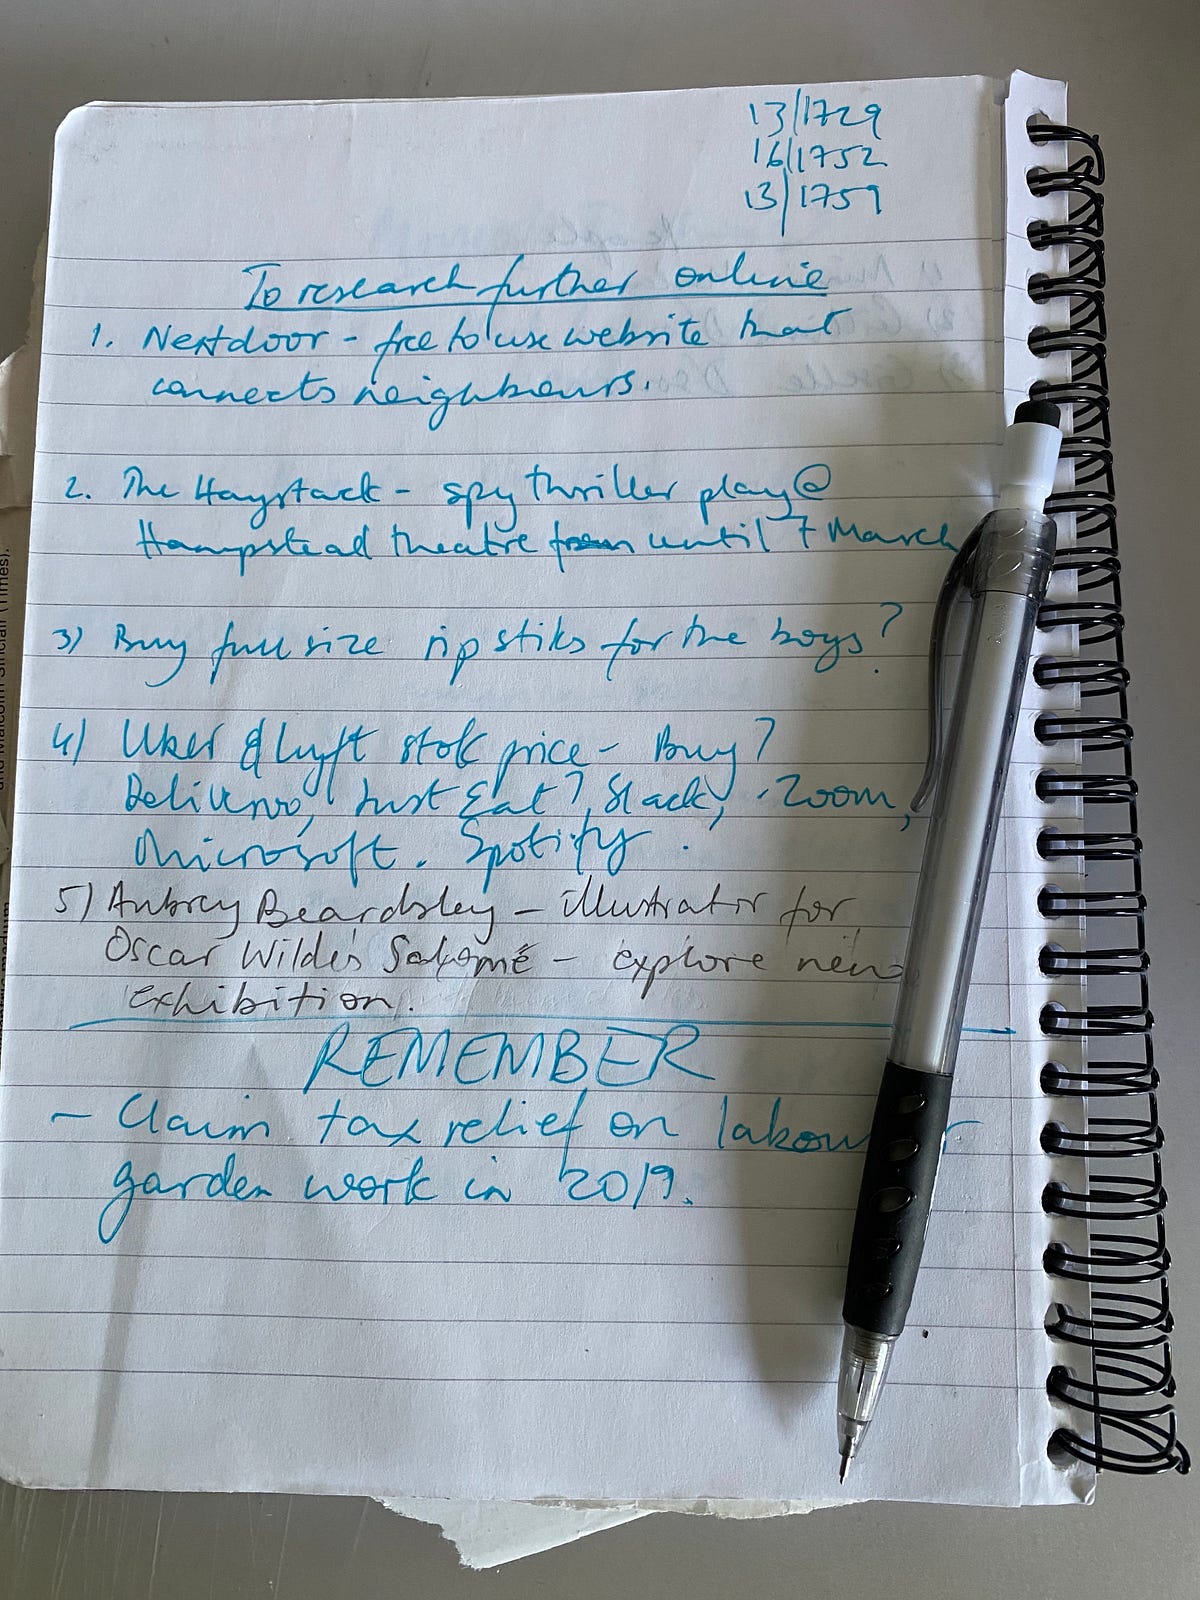 13/1729
16/1752
13/1759
To research further online
1. Nextdoor - free to use website that
connects neighbours.
2. The Haystack - spy thriller play @
Hampstead theatre from until 7 March
3) Buy full size rip stiks for the boys?
4) Uber & Lyft stok price - Buy?
Deliveroo, Just Eat?, Slack, Zoom,
Microsoft. Spotify.
5) Aubrey Beardsley - illustrator for
Oscar Wilde's Salomé - explore new
exhibition.
REMEMBER
- Claim tax relief on labour
garden work in 2019.
and Malcolm Sinclair (Times).